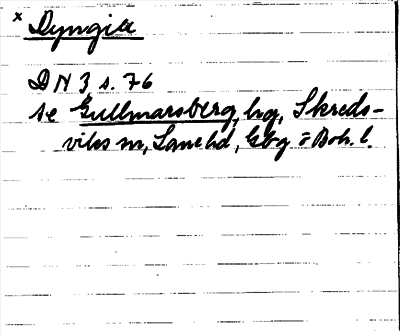 x Dyngia
DN 3 s. 76
se Gullmarsberg, hg, Skreds-
viks sn, Lane hd, Gbg o Boh. l.